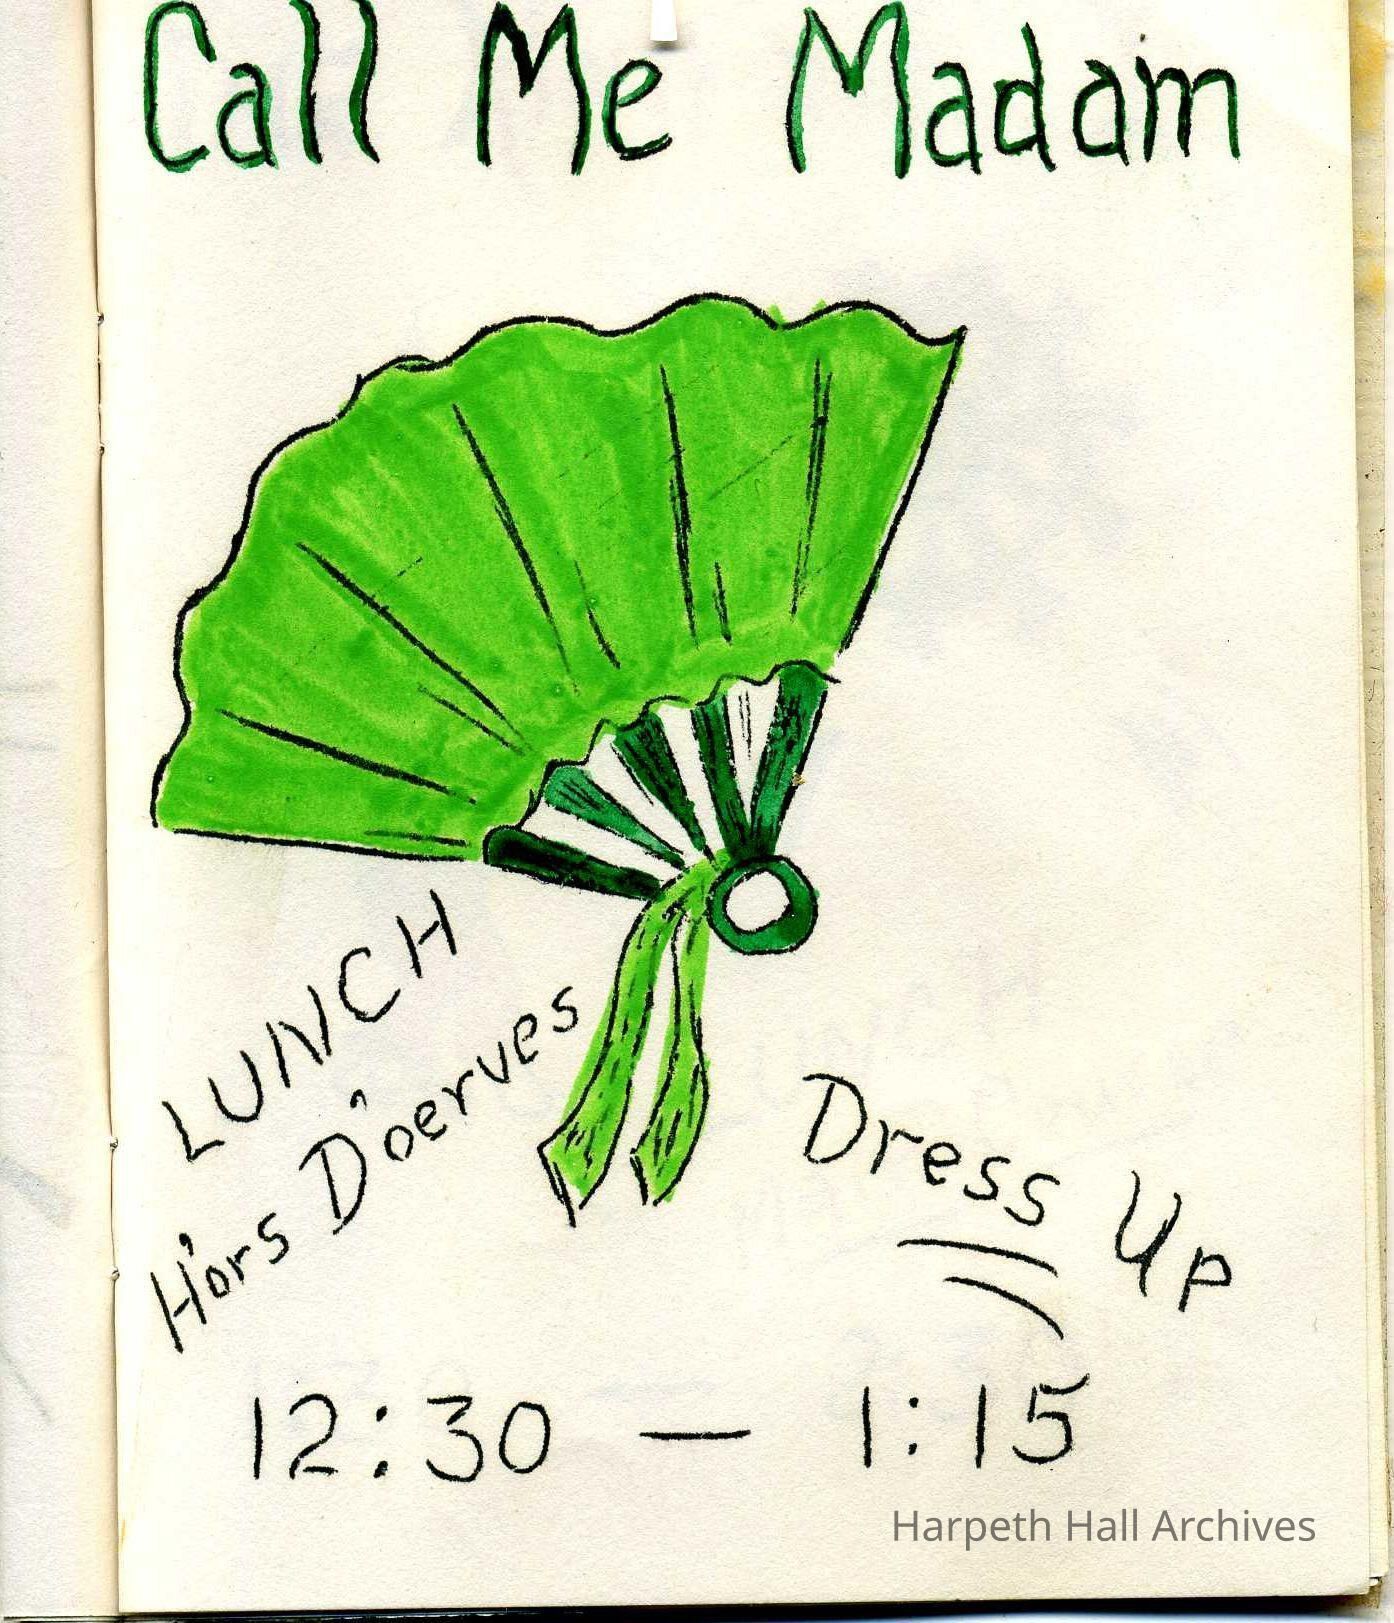 Call Me Madam
LUNCH
H'ors D'oerves
Dress Up
12:30 — 1:15
Harpeth Hall Archives